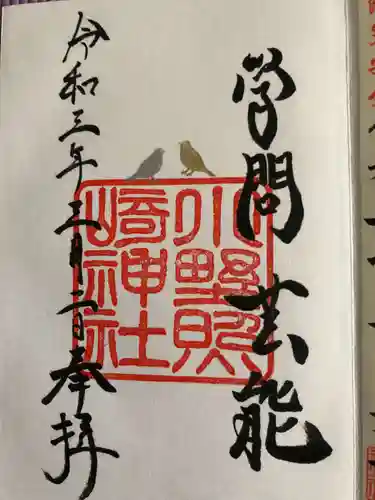 学問 芸能
小野照
崎神社
令和三年三月二日 奉拝